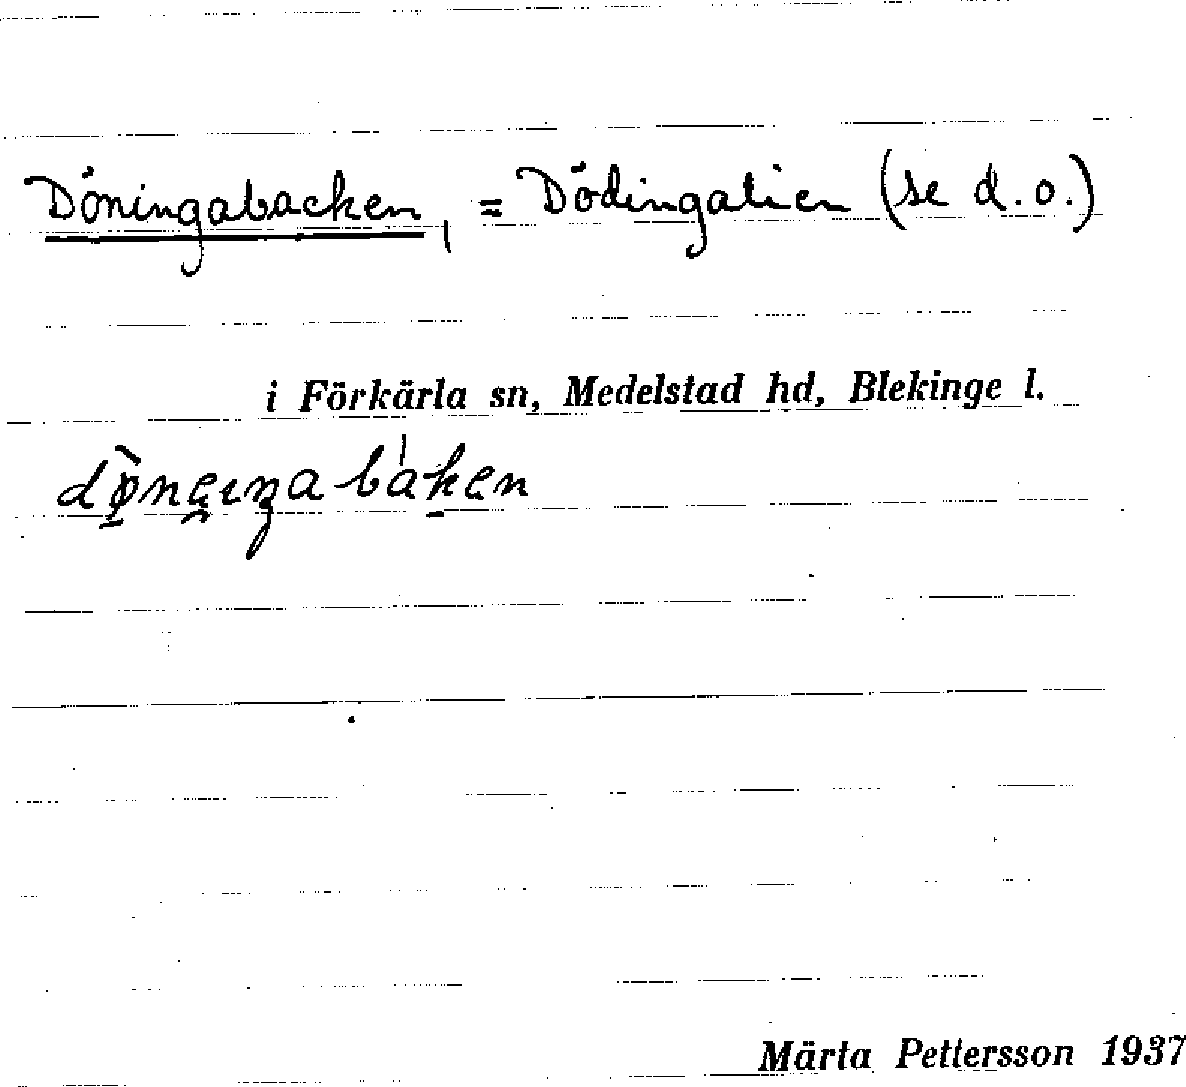 Döningabacken, = Dödingalien (se d. o.)
i Förkärla sn, Medelstad hd, Blekinge l.
Märta Pettersson 1937